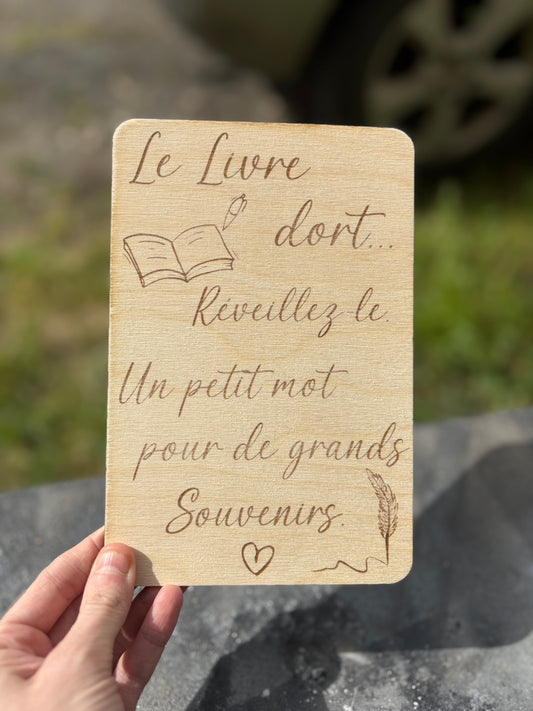 Le Livre
dort...
Réveillez-le.
Un petit mot
pour de grands
Souvenirs.